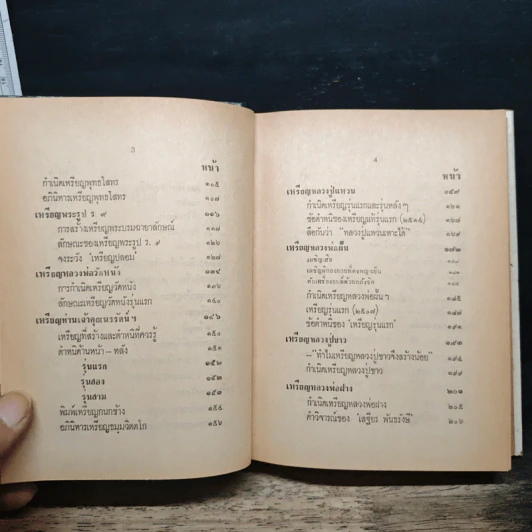 ๓
หน้า
กำเนิดเหรียญพุทธโสทร ๑๐๕
อภินิหารเหรียญพุทธโสทร ๑๐๗
เหรียญพระรูป ร. ๙ ๑๑๖
การสร้างเหรียญพระบรมฉายาลักษณ์
ลักษณะของเหรียญพระรูป ร. ๙ ๑๒๖
จงระวัง "เหรียญปลอม"
เหรียญหลวงพ่อวัดหนัง ๑๓๔
การกำเนิดเหรียญวัดหนัง
ลักษณะเหรียญวัดหนังรุ่นแรก ๑๔๐
เหรียญท่านเจ้าคุณนรรัตน์ฯ ๑๔๖
เหรียญที่สร้างและตำหนิที่ควรรู้ ๑๕๐
ตำหนิด้านหน้า – หลัง ๑๕๑
รุ่นแรก ๑๕๒
รุ่นสอง
รุ่นสาม ๑๕๓
พิมพ์เหรียญกนกข้าง
อภินิหารเหรียญธมฺมวิตกฺโก ๑๕๖
๔
หน้า
เหรียญหลวงปู่แหวน ๑๕๙
กำเนิดเหรียญรุ่นแรกและรุ่นหลังๆ ๑๖๑
ข้อตำหนิของเหรียญแท้รุ่นแรก (๒๕๑๔) ๑๖๗
ลือกันว่า "หลวงปู่แหวนเหาะได้" ๑๖๙
เหรียญหลวงพ่อฝั้น
เผชิญเสือ
กำเนิดเหรียญหลวงพ่อฝั้นฯ ๑๘๕
เหรียญรุ่นแรก (๒๕๐๗) ๑๘๗
ข้อตำหนิของ "เหรียญรุ่นแรก" ๑๙๑
เหรียญหลวงปู่ขาว ๑๙๓
–"ทำไมเหรียญหลวงปู่ขาวจึงสร้างน้อย" ๑๙๕
กำเนิดเหรียญหลวงปู่ขาว ๑๙๙
เหรียญหลวงพ่อฝาง ๒๐๑
กำเนิดเหรียญหลวงพ่อฝาง ๒๐๕
คำวิจารณ์ของ "เสฐียร พันธรังษี" ๒๐๖